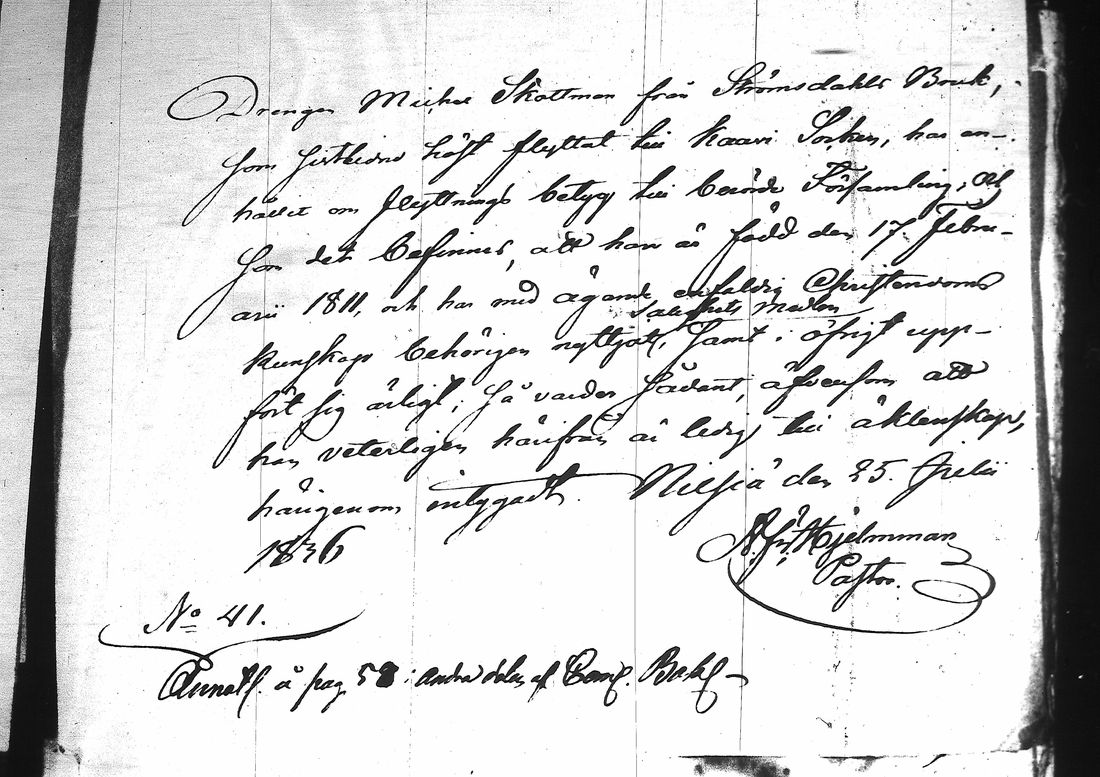 Drengen Michel Skottman från Strömsdahls Bruk,
som sistledne höst flyttat till Kaavi Socken, har an-
hållit om flyttnings betyg till berörde Församling, och
som det befinnes, att han är född den 17. Febru-
arii 1811, och har med ägande enfaldig Christendoms
salighets medlen
kunskap behörigen nyttjat, samt i öfrigt upp-
fört sig ärligt; så varder sådant, äfvensom att
han veterligen härifrån är ledig till äktenskap,
härigenom intygadt. Nilsiä den 25. Aprilis
1836
Hjelmman
Pastor.
No 41.
Annot. å pag 58 i andra delen af Com. Bok